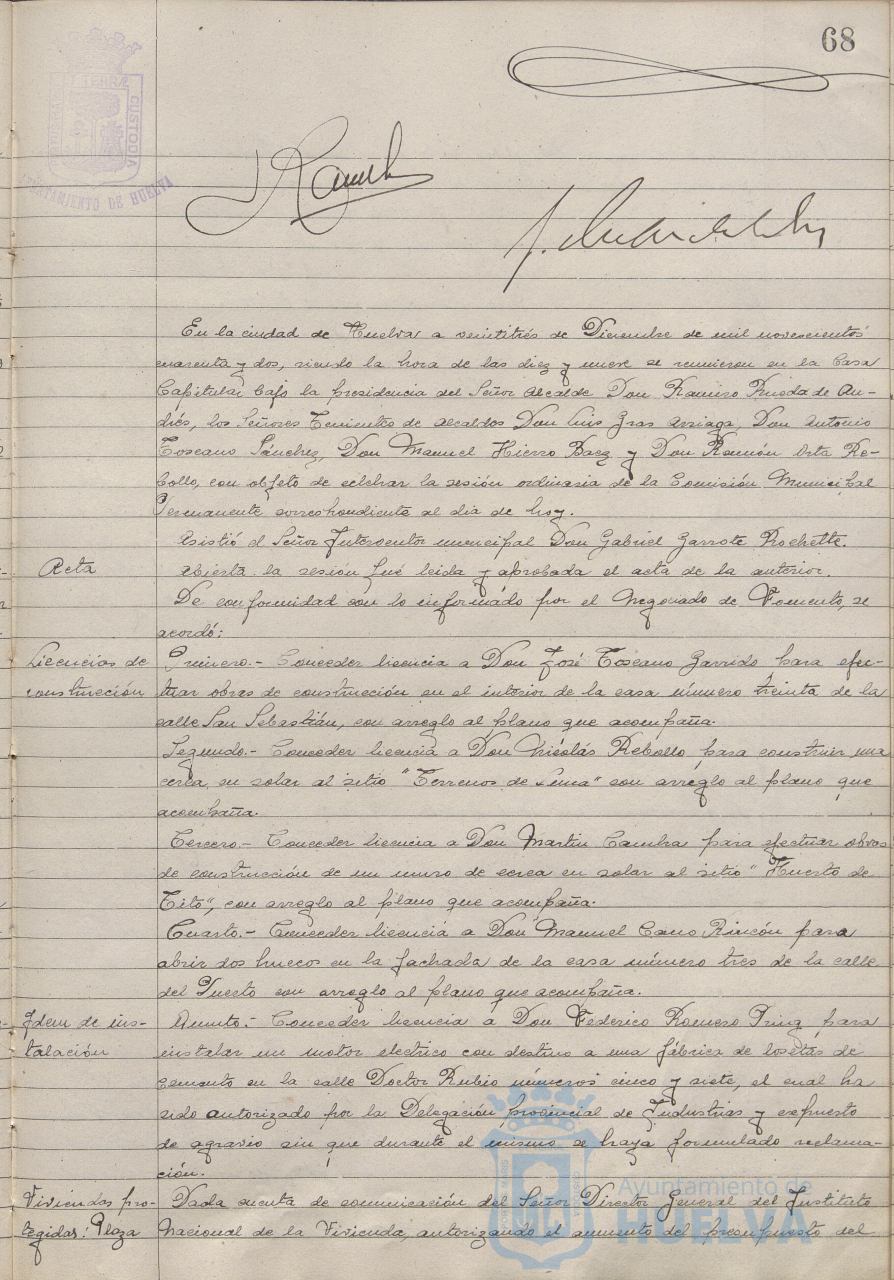 68
TERRÆ
CUSTODIA
AYUNTAMIENTO DE HUELVA
En la ciudad de Huelva a veintitrés de Diciembre de mil novescientos
cuarenta y dos, siendo la hora de las diez y nueve se reunieron en la Casa
Capitular bajo la presidencia del Señor Alcalde Don Ramiro Rueda de An-
drés, los Señores Tenientes de alcaldes Don Luis Gras Arriaga, Don Antonio
Toscano Sánchez, Don Manuel Hierro Baez y Don Ramón Orta Re-
bollo, con objeto de celebrar la sesión ordinaria de la Comisión Municipal
Permanente correspondiente al dia de hoy.
Asistió el Señor Interventor municipal Don Gabriel Garrote Rochette.
Acta
Abierta la sesión fué leida y aprobada el acta de la anterior.
De conformidad con lo informado por el Negociado de Fomento, se
acordó:
Licencias de
construcción
Primero.- Conceder licencia a Don José Toscano Garrido para efec-
tuar obras de construcción en el interior de la casa número treinta de la
calle San Sebastián, con arreglo al plano que acompaña.
Segundo.- Conceder licencia a Don Nicolás Rebollo para construir una
cerca en solar al sitio "Terrenos de" con arreglo al plano que
acompaña.
Tercero.- Conceder licencia a Don Martin para efectuar obras
de construcción de un muro de cerca en solar al sitio "Huerto de
Tito", con arreglo al plano que acompaña.
Cuarto.- Conceder licencia a Don Manuel Cano Rincón para
abrir dos huecos en la fachada de la casa número tres de la calle
del Puerto con arreglo al plano que acompaña.
Idem de ins-
talación
Quinto.- Conceder licencia a Don Federico Romero Puig para
instalar un motor electrico con destino a una fábrica de losetas de
cemento en la calle Doctor Rubio números cinco y siete, el cual ha
sido autorizado por la Delegación provincial de Industrias y expuesto
de agravio sin que durante el mismo se haya formulado reclama-
ción.
Viviendas pro-
tegidas: Plaza
Dada cuenta de comunicación del Señor Director General del Instituto
Nacional de la Vivienda, autorizando el aumento del presupuesto del
Ayuntamiento de
HUELVA